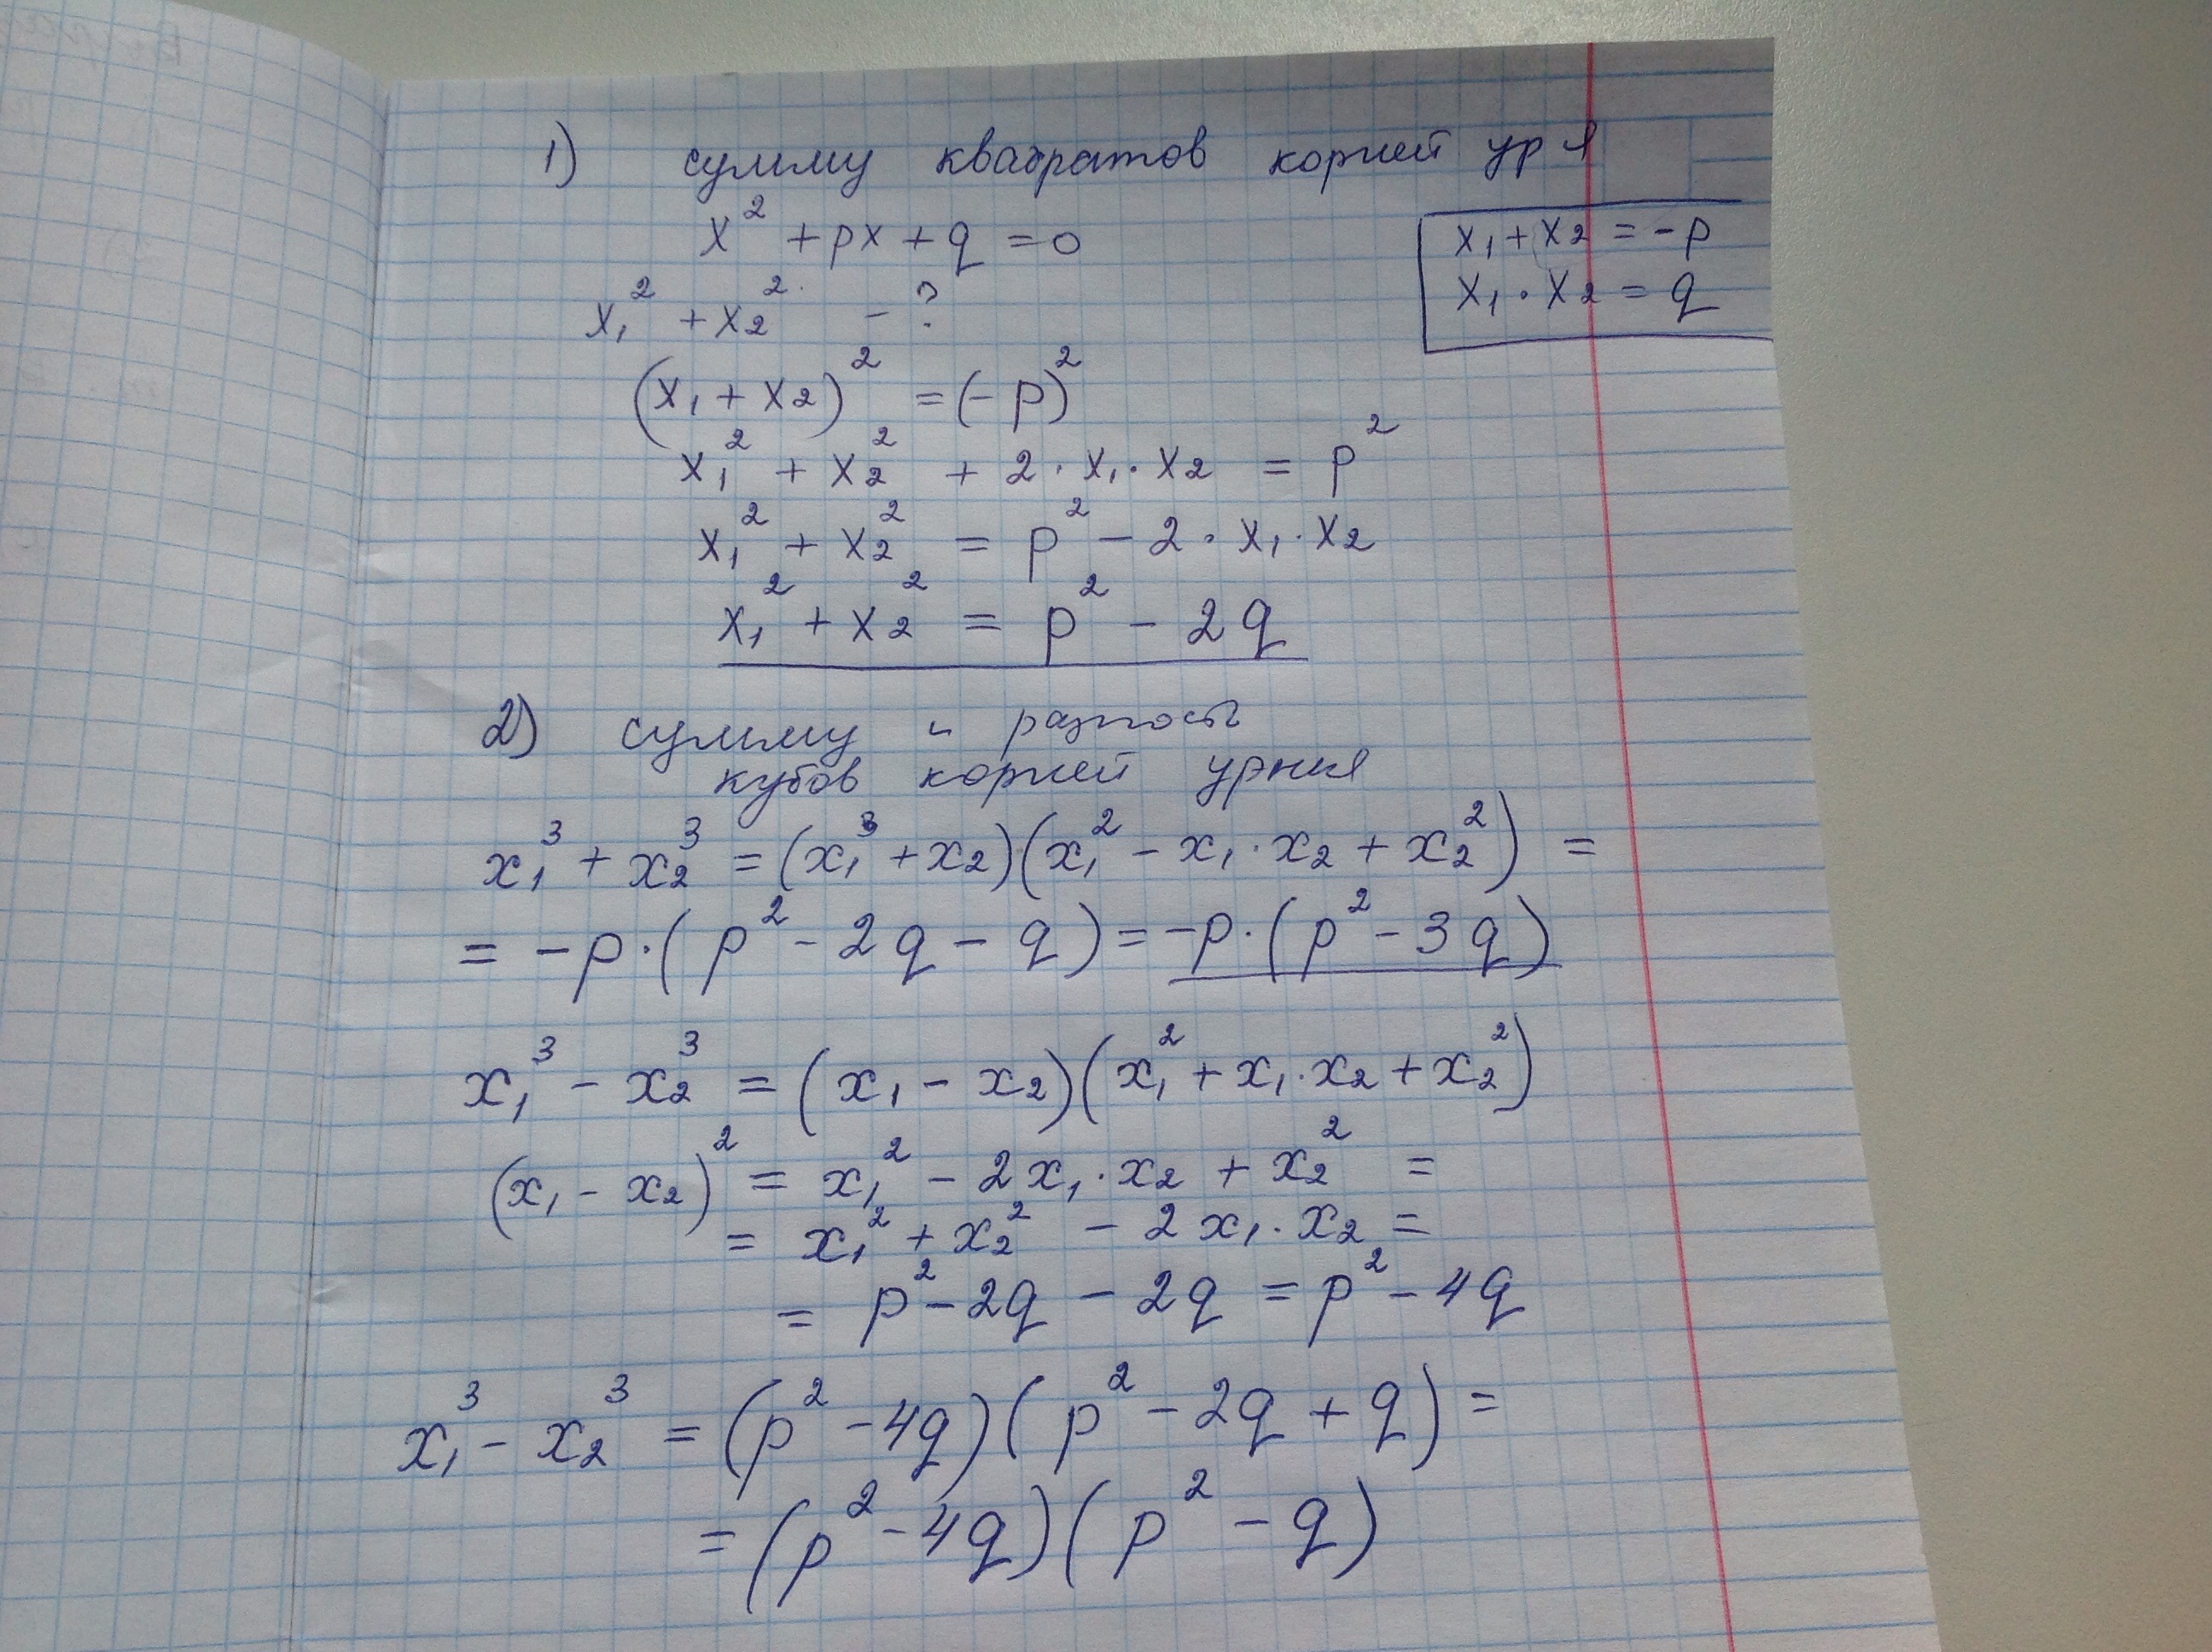 1) сумму квадратов корней ур я
x² + px + q = 0
x₁ + x₂ = -p
x₁ · x₂ = q
x₁² + x₂² - ?
(x₁ + x₂)² = (-p)²
x₁² + x₂² + 2 · x₁ · x₂ = p²
x₁² + x₂² = p² - 2 · x₁ · x₂
x₁² + x₂² = p² - 2q
2) сумму и разность
кубов корней урния
x₁³ + x₂³ = (x₁³ + x₂)(x₁² - x₁ · x₂ + x₂²) =
= -p · (p² - 2q - q) = -p · (p² - 3q)
x₁³ - x₂³ = (x₁ - x₂)(x₁² + x₁ · x₂ + x₂²)
(x₁ - x₂)² = x₁² - 2x₁ · x₂ + x₂² =
= x₁² + x₂² - 2x₁ · x₂ =
= p² - 2q - 2q = p² - 4q
x₁³ - x₂³ = (p² - 4q)(p² - 2q + q) =
= (p² - 4q)(p² - q)